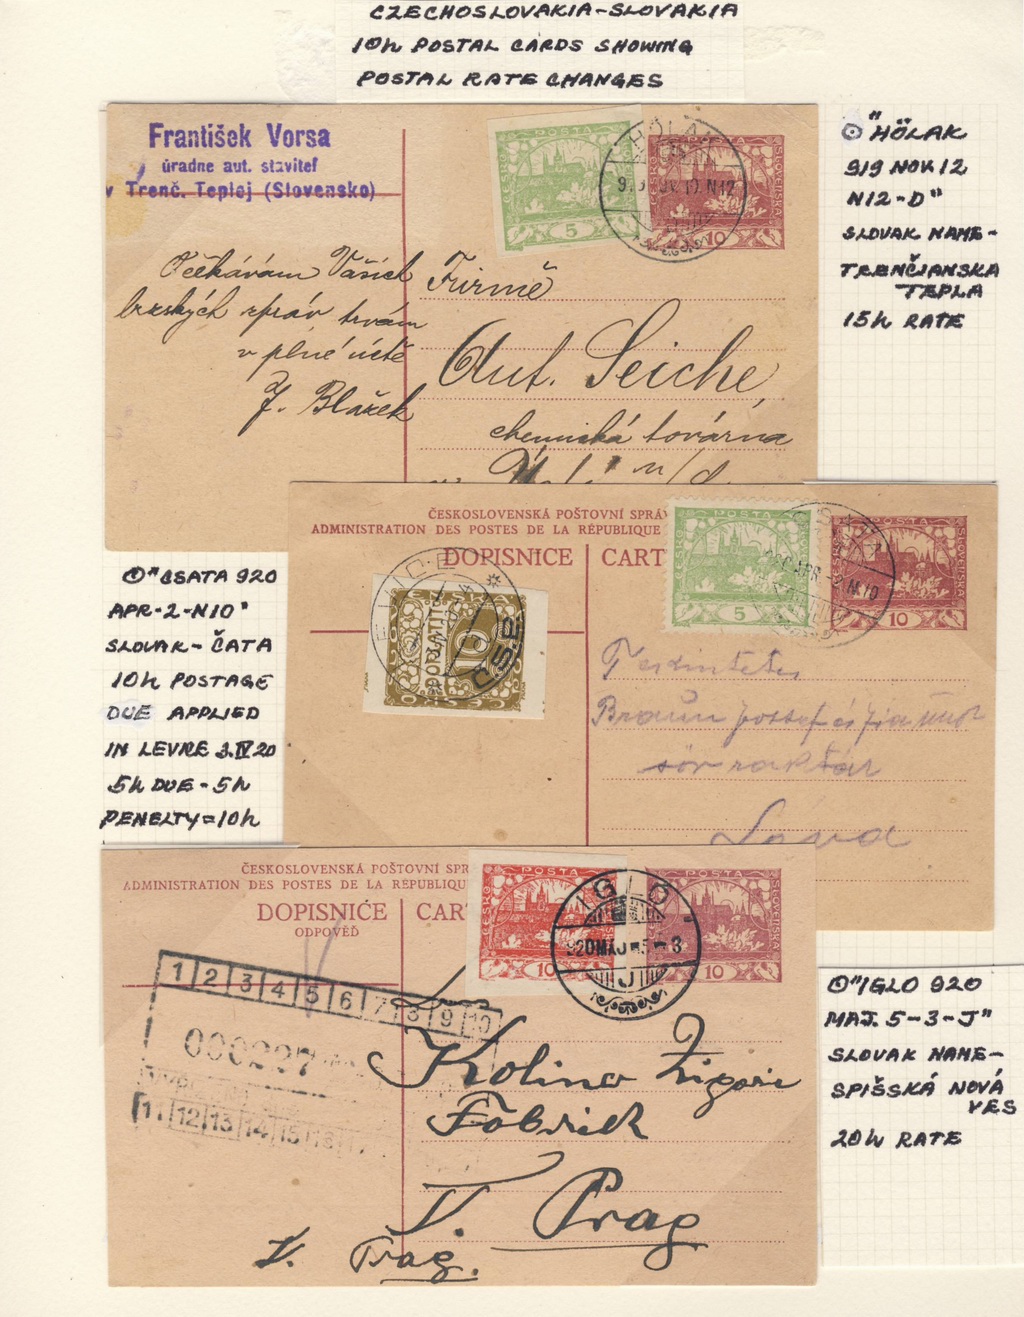 CZECHOSLOVAKIA-SLOVAKIA
10h POSTAL CARDS SHOWING
POSTAL RATE CHANGES
František Vorsa
úradne aut. staviteľ
v Trenč. Teplej (Slovensko)
POSTA
5
HÖLAK
POSTA
ČESKO
SLOVENSKÁ
10
"HÖLAK
919 NOV 12
N12-D"
SLOVAK NAME-
TRENČIANSKA
TEPLA
15h RATE
Očekávám Vašich
brzkých zpráv trvám
v plné úctě
J. Blažek
Firmě
Aut. Seiche,
chemická továrna
ČESKOSLOVENSKÁ POŠTOVNÍ SPRÁV
ADMINISTRATION DES POSTES DE LA RÉPUBLIQUE
DOPISNICE
CART
POSTA
5
POSTA
SLOVENSKÁ
10
DOPLATIT
10
"CSATA 920
APR-2-N10"
SLOVAK-ČATA
10h POSTAGE
DUE APPLIED
IN LEVICE 3.IV 20
5h DUE-5h
PENELTY=10h
Tekintetes
Braun József és fia
sör raktár
Léva
ČESKOSLOVENSKÁ POŠTOVNÍ SPR
ADMINISTRATION DES POSTES DE LA RÉPUBLIQU
DOPISNIĆE
CAR
ODPOVĚĎ
POSTA
ČESKO
10
IGLÓ
920 MAJ -5 - 3
J
POSTA
SLOVENSKÁ
10
1 2 3 4 5 6 7 8 9 10
000297
11 12 13 14 15 16
Kolino Zigorie
Fabrick
V. Prag
V. Prag.
"IGLO 920
MAJ. 5-3-J"
SLOVAK NAME-
SPIŠSKÁ NOVÁ
VES
20h RATE